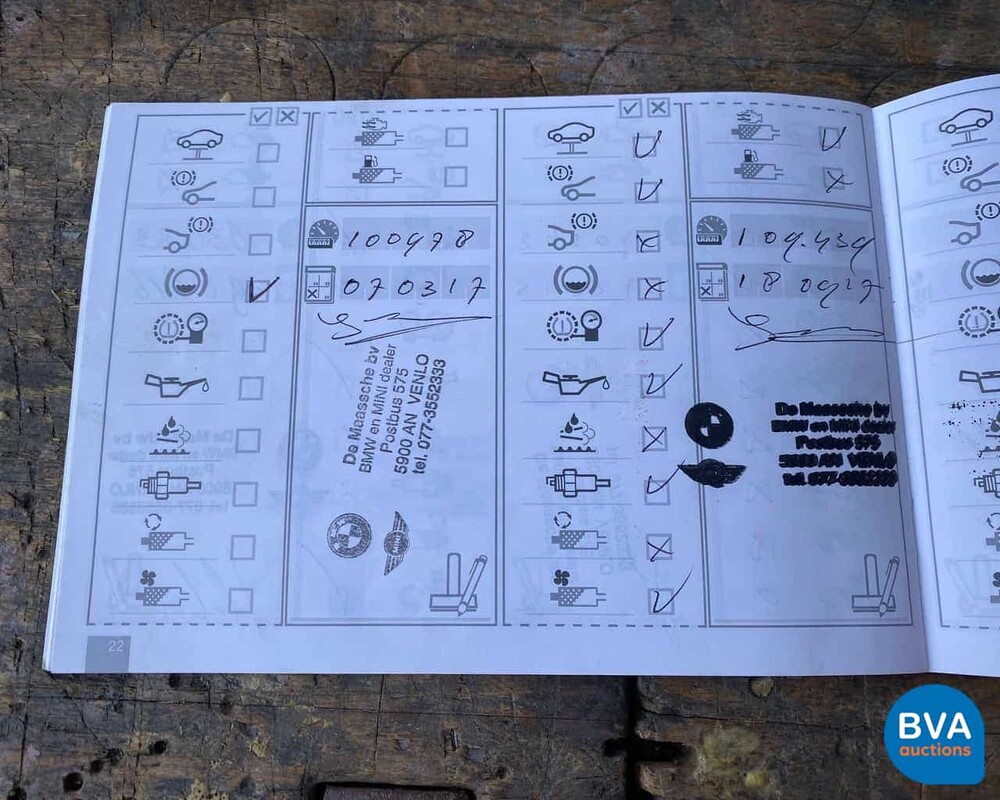 100978
070317
De Maassche bv
BMW en MINI dealer
Postbus 575
5900 AN VENLO
tel. 077-3552333
MINI
109.439
18 0917
De Maassche bv
BMW en MINI dealer
Postbus 575
5900 AN VENLO
22
BVA
auctions